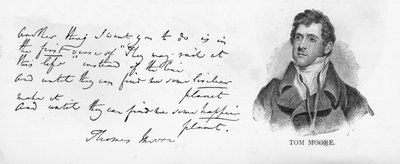 Another thing I want you to do is in
the first verse of "They may rail at
this life" instead of the line
And until they can find me some
planet
make it
And until they can find me some happier
planet.
Thomas Moore
TOM MOORE.